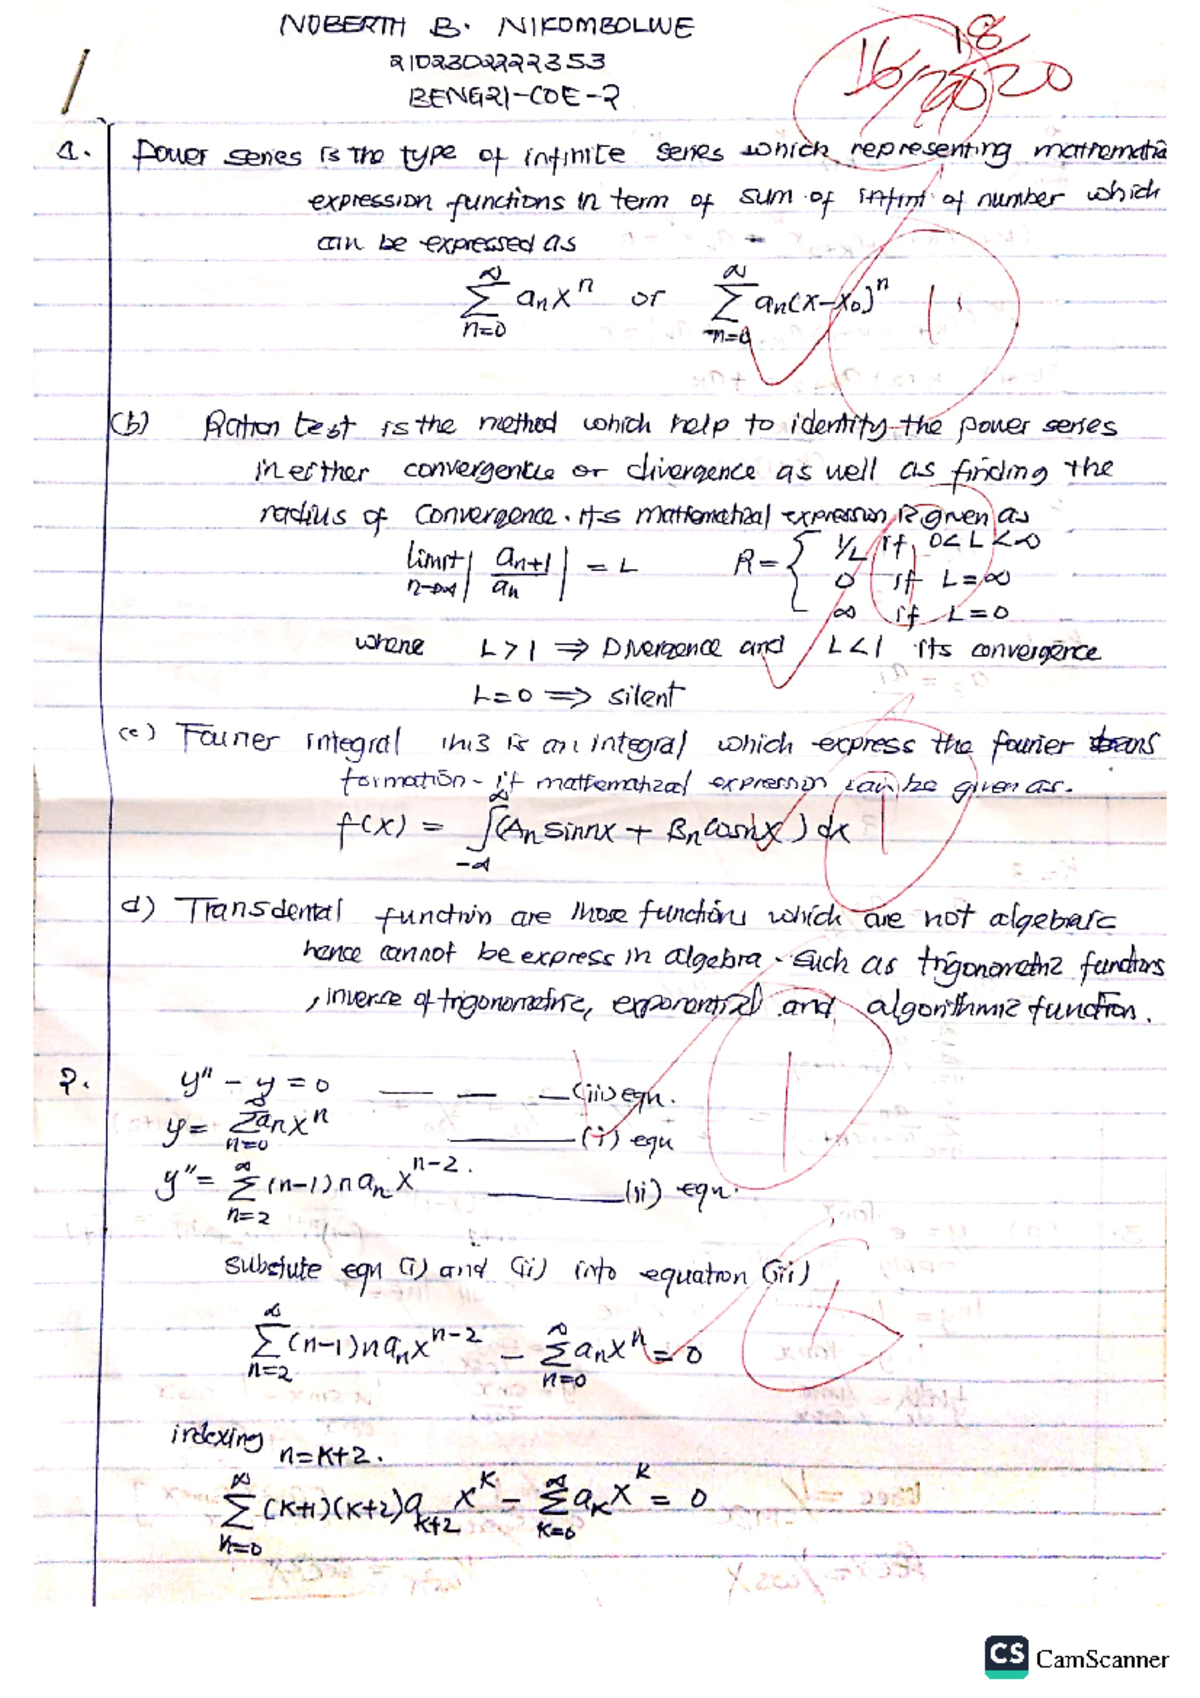 NOBERTH B. NIKOMBOLWE
2102302222353
BENG21-COE-2
16/20
18/20
1. Power series is the type of infinite series which representing mathematic
expression functions in term of sum of infint of number which
can be expressed as
∞∑n=0 aₙxⁿ or ∞∑n=0 aₙ(x-x₀)ⁿ
1
(b) Ration test is the method which help to identity the power series
in either convergence or divergence as well as finding the
radius of convergence. Its mathematical expression is given as
limit n→∞ |aₙ₊₁/aₙ| = L R = { 1/L if 0<L<∞
0 if L=∞
∞ if L=0
where L>1 ⇒ Divergence and L<1 its convergence
L=0 ⇒ silent
1
(c) Fourier integral this is an integral which express the fourier trans
formation - it mathematical expression can be given as.
f(x) = ∫-∞^∞ (Aₙ sinnx + Bₙ cosnx) dx
1
d) Transdental function are those functions which are not algebaric
hence cannot be express in algebra. Such as trigonometric functions
, inverse of trigonometric, exponential and algorithmic function.
1
2. y″ - y = 0 — — — (iii) eqn.
y = ∞∑n=0 aₙxⁿ ——— (i) eqn
y″ = ∞∑n=2 (n-1)n aₙ xⁿ⁻². ——— (ii) eqn.
substute eqn (i) and (ii) into equation (iii)
∞∑n=2 (n-1)n aₙxⁿ⁻² - ∞∑n=0 aₙxⁿ = 0
1
indexing n=k+2.
∞∑k=0 (k+1)(k+2)a k+2 xᵏ - ∞∑k=0 aₖxᵏ = 0
CS CamScanner